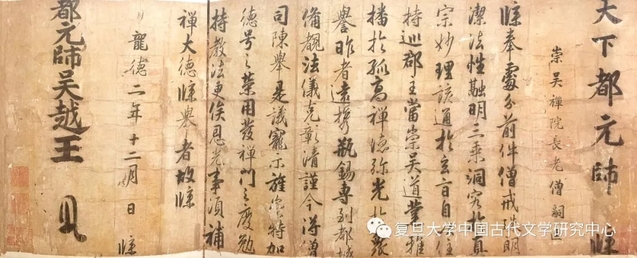 天下都元帥 牒
崇吳禪院長老僧嗣
牒奉處分前件僧戒珠明
潔法性融明三乘洞究於真
宗妙理該通於玄旨自住
持巡郡主當崇吳道業雅
播於孤高禪德弥光於眾
譽昨者遠携瓶錫專到都城
備覩法儀克彰清謹今得僧
司陳舉是議寵示旌崇特加
德号之榮用發禪門之慶勉
持教法更俟恩光事須補
禪大德牒舉者故牒
龍德二年十二月 日 牒
都元帥吳越王
复旦大学中国古代文学研究中心